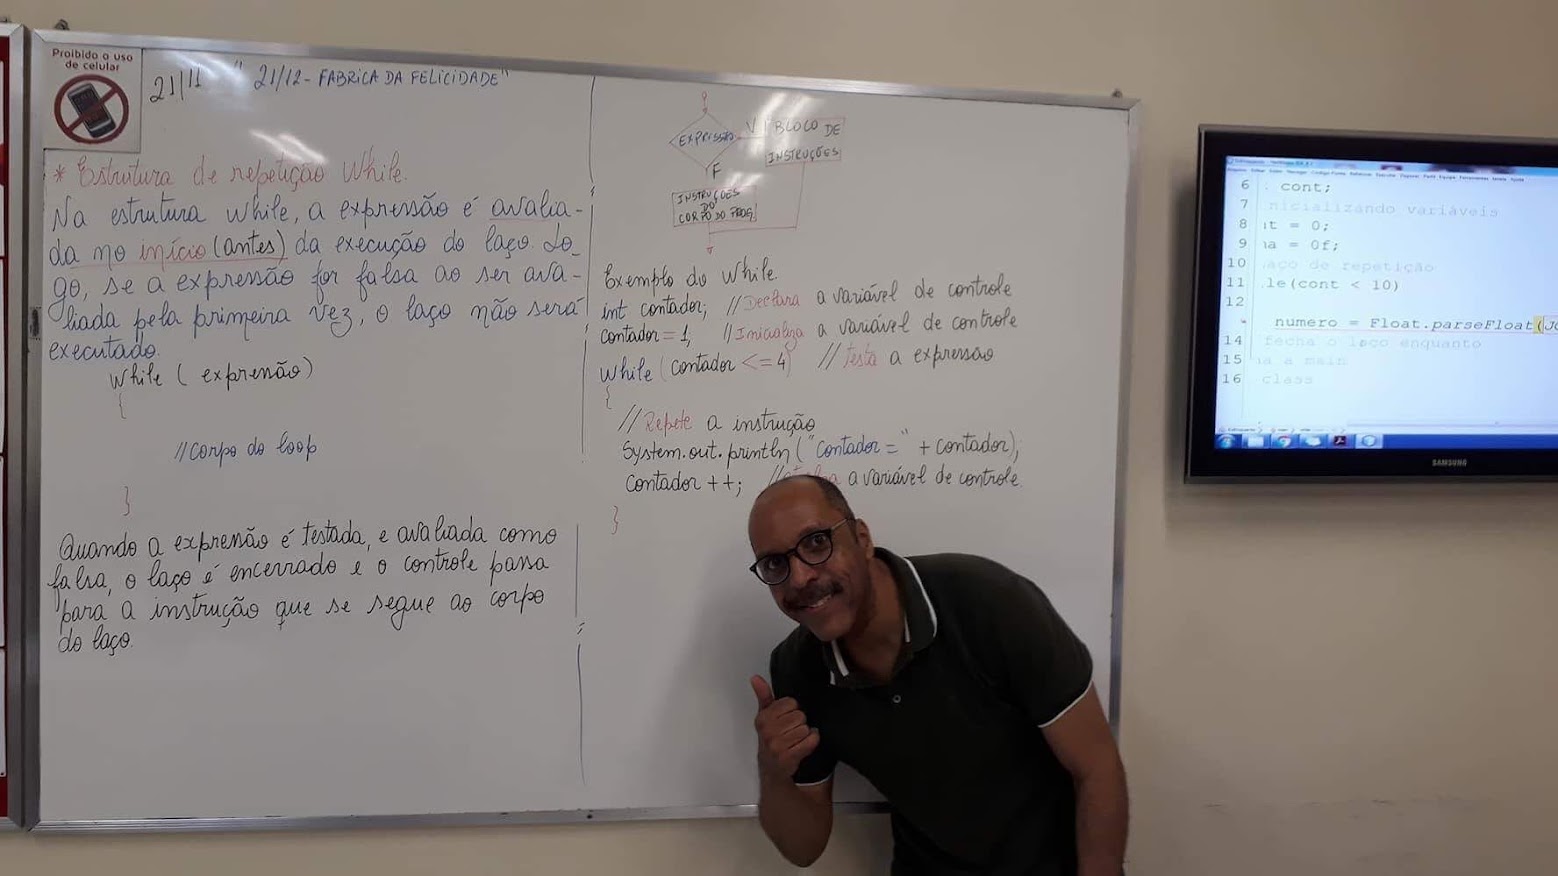 Proibido o uso
de celular
21/11 " 21/12 - FABRICA DA FELICIDADE"
* Estrutura de repetição While.
Na estrutura while, a expressão é avalia-
da no início (antes) da execução do laço. Lo-
go, se a expressão for falsa ao ser ava-
liada pela primeira vez, o laço não será
executado.
While ( expressão)
{
//Corpo do loop
}
Quando a expressão é testada, e avaliada como
falsa, o laço é encerrado e o controle passa
para a instrução que se segue ao corpo
do laço.
EXPRESSÃO
V
BLOCO DE
INSTRUÇÕES
F
INSTRUÇÕES
DO
CORPO DO PROG
Exemplo do While.
int contador; //Declara a variável de controle
contador = 1; //Inicializa a variável de controle
While (contador <= 4) //Testa a expressão
{
//Repete a instrução
System.out.println("Contador =" + contador);
Contador ++; // a variável de controle.
}
6 cont;
7 nicializando variáveis
8 t = 0;
9 a = 0f;
10 aço de repetição
11 le(cont < 10)
12
numero = Float.parseFloat(JO
14 fecha o laço enquanto
15 a a main
16 class
SAMSUNG